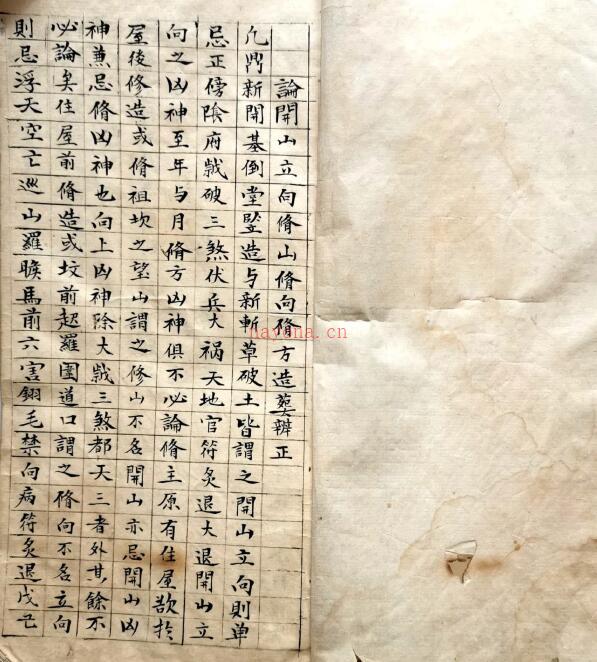 論開山立向脩山脩向脩方造塟辨正
凢鼎新開基倒堂竪造与新斬草破土皆謂之開山立向則单
忌正傍陰府歳破三煞伏兵大禍天地官符炙退大退開山立
向之凶神至年与月脩方凶神俱不必論脩主原有住屋欲扵
屋後修造或脩祖坎之望山謂之修山不名開山亦忌開山凶
神兼忌脩凶神也向上凶神除大歳三煞都天三者外其餘不
必論矣住屋前脩造或坟前起羅圍道口謂之脩向不名立向
則忌浮天空亡巡山羅睺馬前六害翎毛禁向病符炙退戊己
nayona.cn